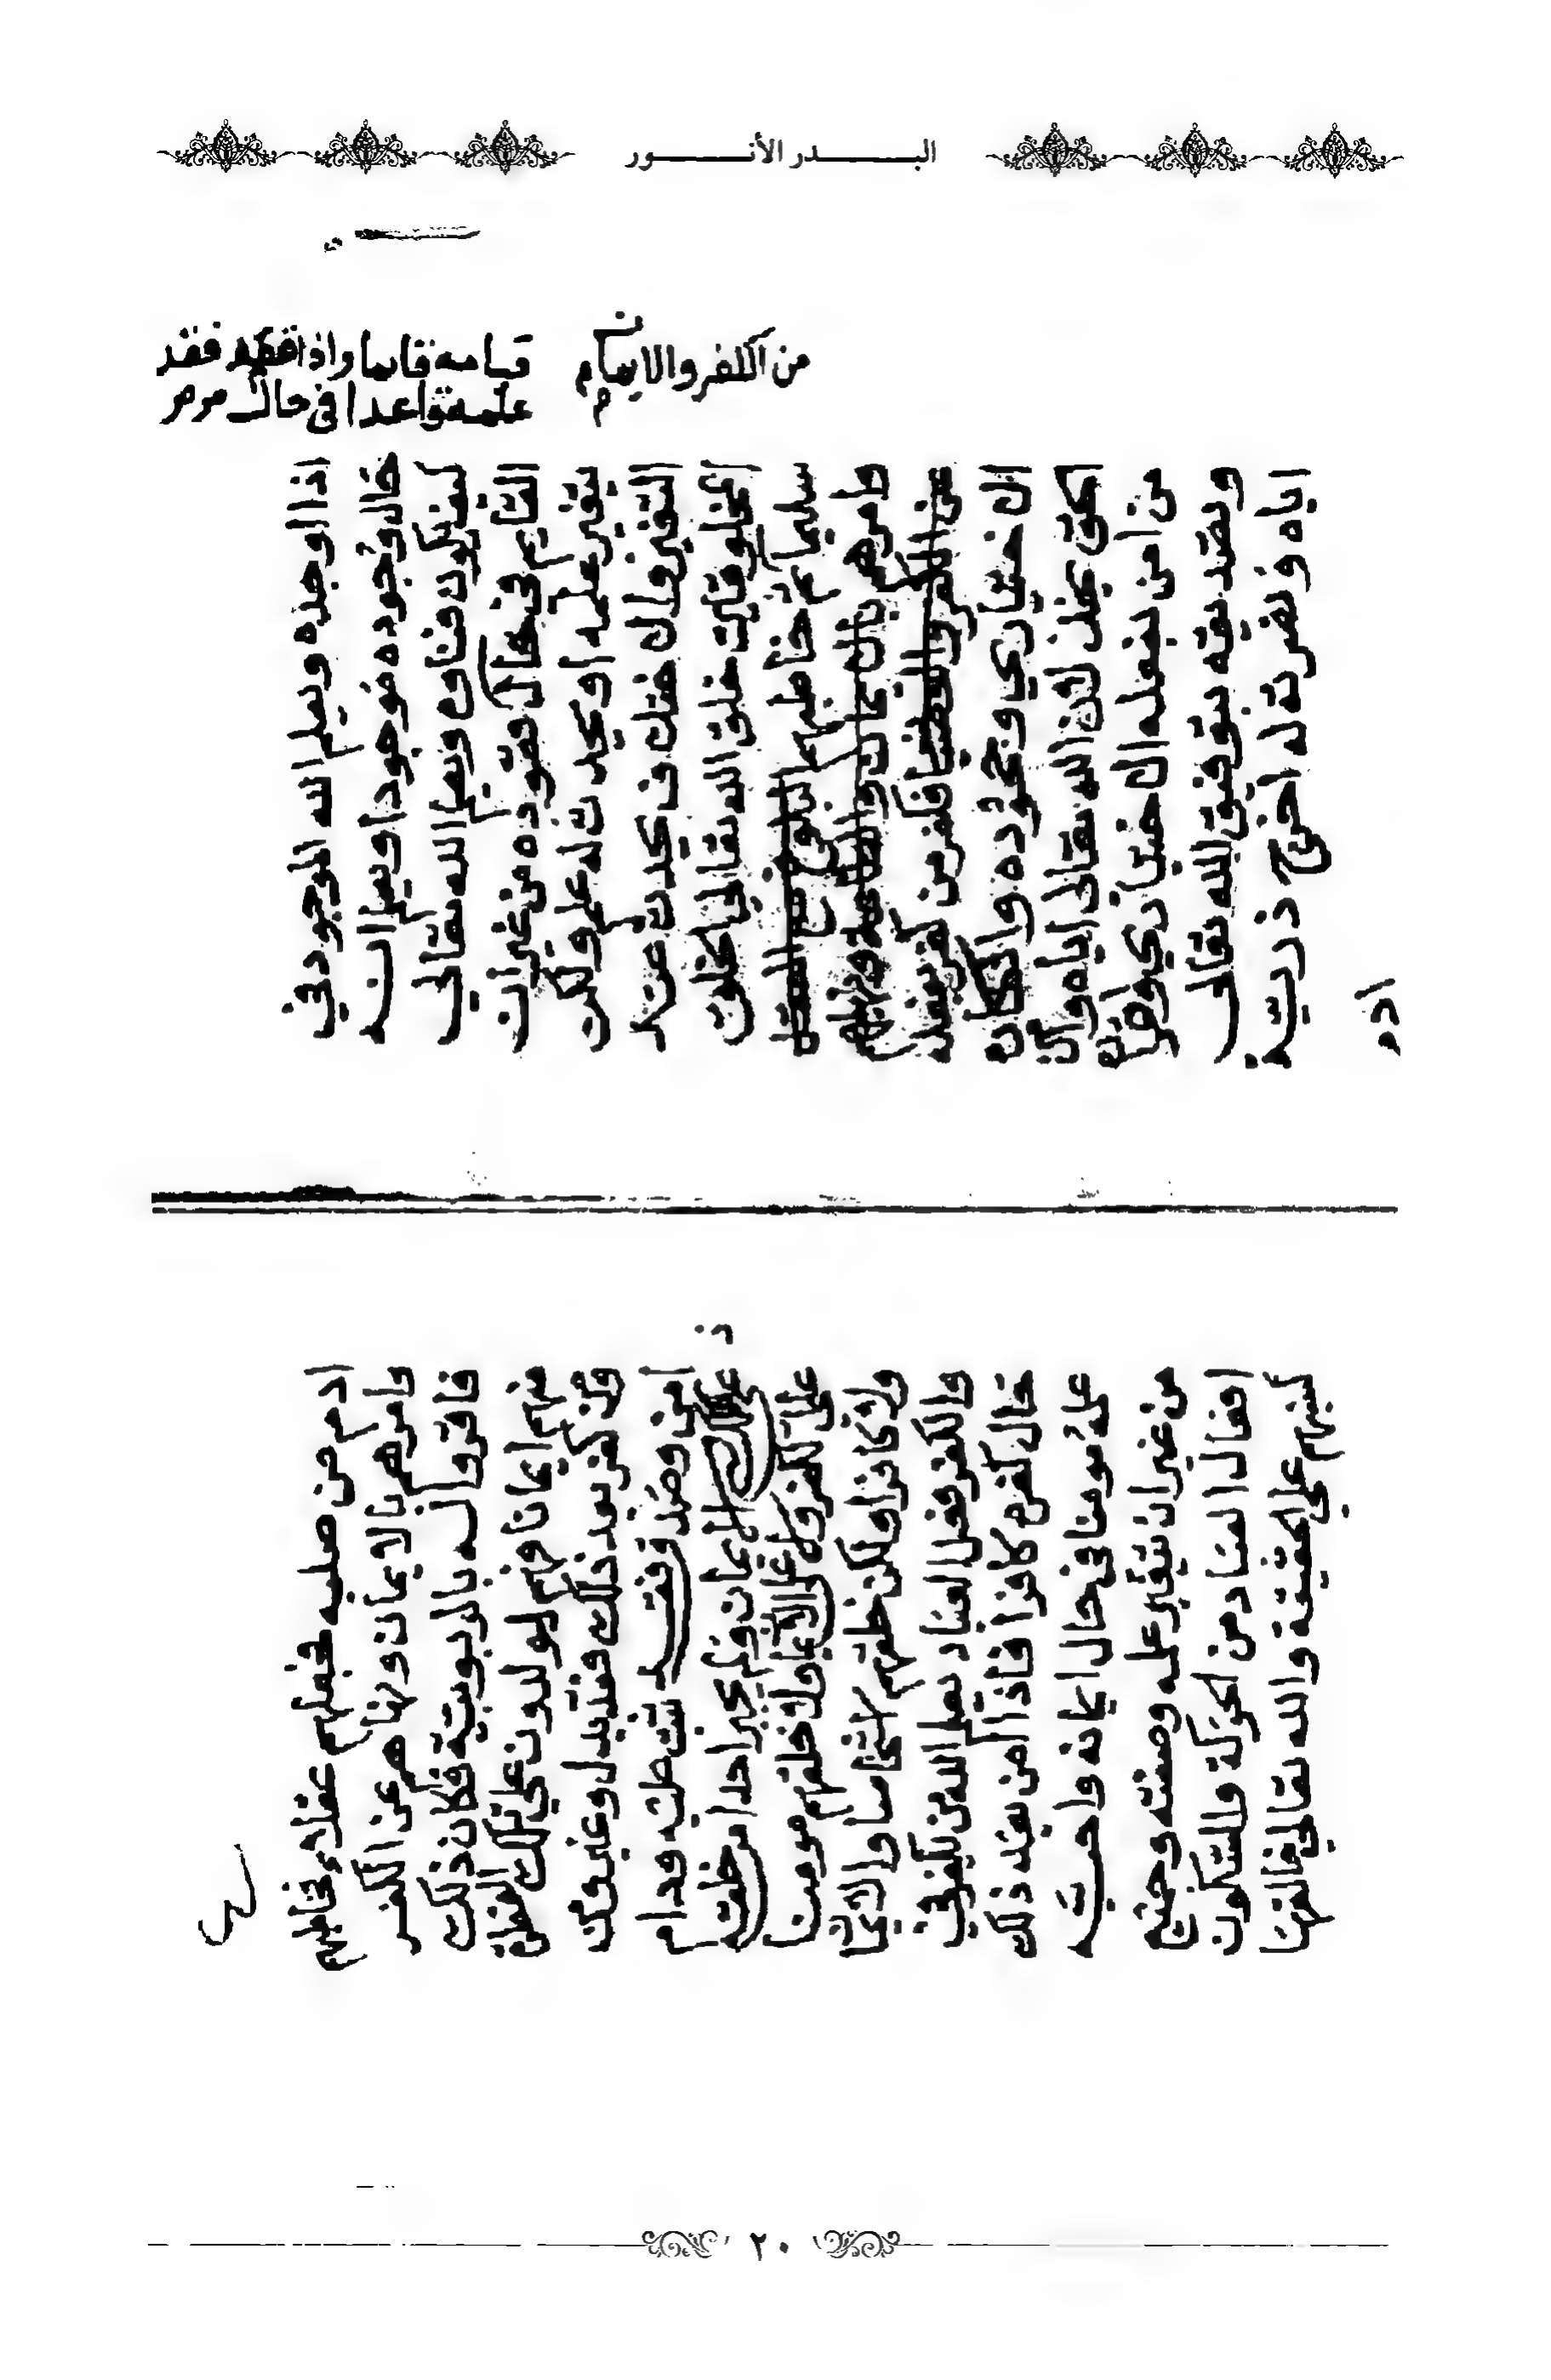 البـــدر الأنـــور
من الكفر والايمان
قيامه قايما واذا قعد فقد
علمه قاعدا في حال
اذا اوجده ويعلم الله الموجود في
حال وجوده موجودا ويعلم انه
كيف يكون فناوه ويعلم الله تعالى
القايم في حال قعوده من غير ان
يتغير علمه او يحدث له علم ولكن
التغير والاختلاف يحدث عند
المخلوقين خلق الله تعالى الخلق
سليما ثم خاطبهم
وامرهم بالايمان والطاعة ونهاهم
عن الكفر فكفر من كفر بفعله
الاختياري وجحوده وانكاره
الحق بخذلان الله تعالى اياه وآمن
من امن بفعله الاختياري واقراره
وتصديقه بتوفيق الله تعالى
اياه ونصرته له اخرج ذرية
ادم
ادم من صلبه فجعلهم عقلاء فخاطبهم
وامرهم بالايمان ونهاهم عن الكفر
فاقروا له بالربوبية فكان ذلك
منهم ايمانا فهم يولدون على تلك الفطرة
ومن كفر بعد ذلك فقد بدل وغير ومن
امن وصدق فقد ثبت عليه ودام
على الايمان ولم يجبر احدا من خلقه
على الكفر ولا على الايمان ولا خلقهم مومنا
ولا كافرا ولكن خلقهم اشخاصا والايمان
والكفر فعل العباد يعلم الله من يكفر في
حال كفره كافرا فاذا امن بعد ذلك
علمه مومنا في حال ايمانه واحبه
من غير ان يتغير علمه وصفته وجميع
افعال العباد من الحركة والسكون
كسبهم على الحقيقة والله تعالى خالقها
٢٠